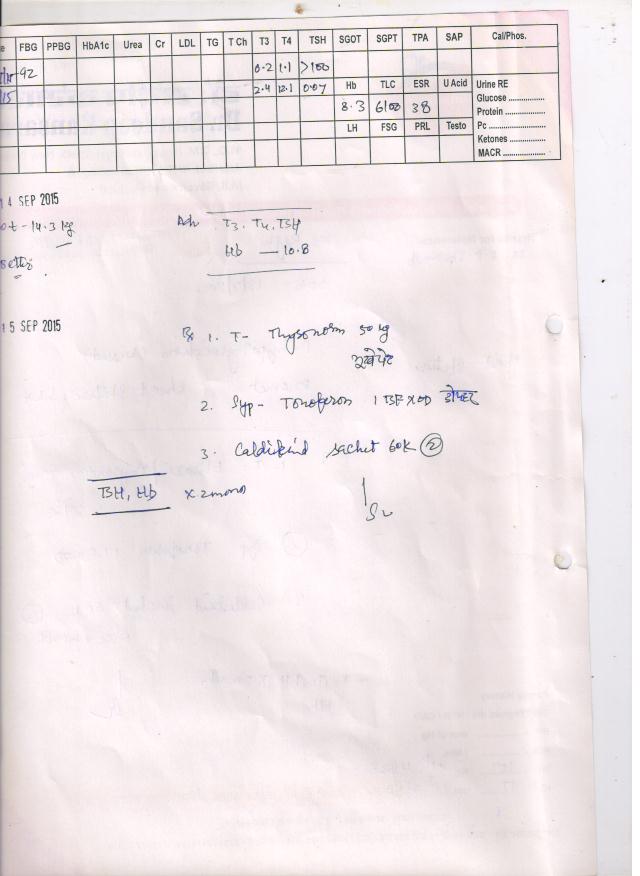 e FBG PPBG HbA1c Urea Cr LDL TG T Ch T3 T4 TSH SGOT SGPT TPA SAP Cal/Phos.
92 0.2 1.1 >100
15 2.4 12.1 0.07 Hb TLC ESR U Acid Urine RE
8.3 6100 38 Glucose ..............
Protein ..............
LH FSG PRL Testo Pc ......................
Ketones ..............
MACR ..................
4 SEP 2015
14.3 kg Adv T3. T4. TSH
Hb — 10.8
15 SEP 2015
Rx 1. T- Thyronorm 50
2. Syp- Tonoferon 1 TSF X OD
3. Caldikind sachet 60K (2)
TSH, Hb x 2